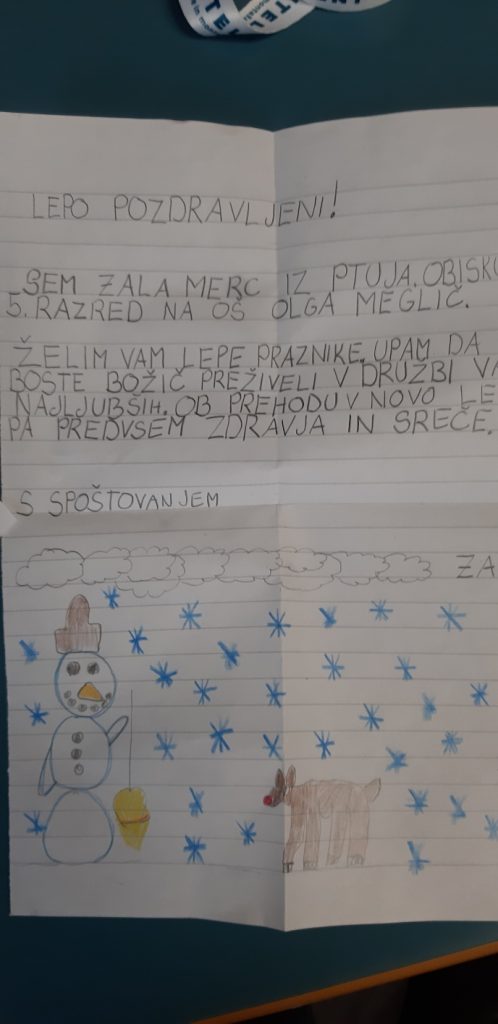 TEL
LEPO POZDRAVLJENI!
SEM ZALA MERC IZ PTUJA. OBISKU
5. RAZRED NA OŠ OLGA MEGLIČ.
ŽELIM VAM LEPE PRAZNIKE. UPAM DA
BOSTE BOŽIČ PREŽIVELI V DRUŽBI VA
NAJLJUBŠIH. OB PREHODU V NOVO LE
PA PREDVSEM ZDRAVJA IN SREČE.
S SPOŠTOVANJEM
ZA